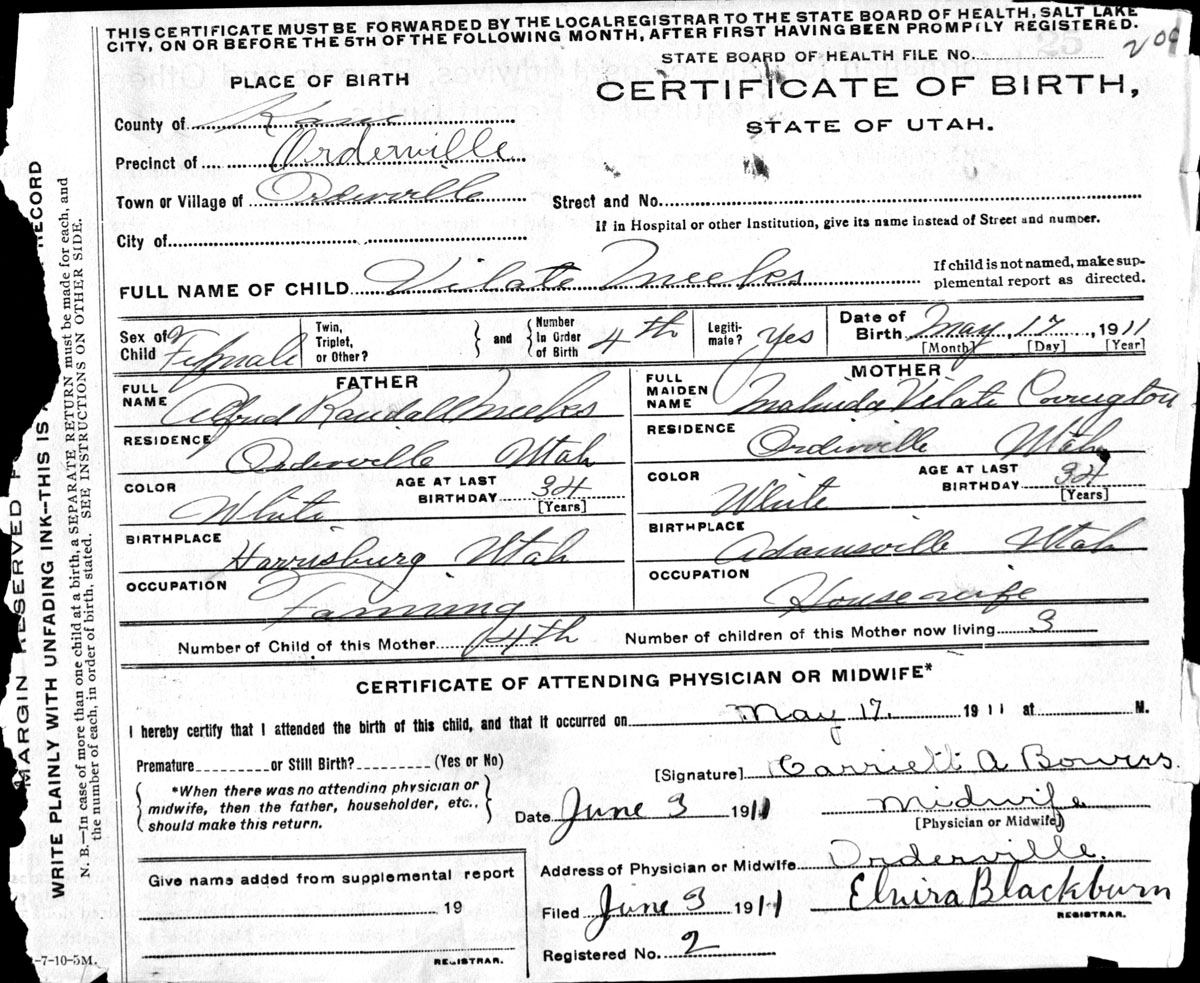 THIS CERTIFICATE MUST BE FORWARDED BY THE LOCAL REGISTRAR TO THE STATE BOARD OF HEALTH, SALT LAKE
CITY, ON OR BEFORE THE 5TH OF THE FOLLOWING MONTH, AFTER FIRST HAVING BEEN PROMPILY REGISTERED.
25
STATE BOARD OF HEALTH FILE No. 209
PLACE OF BIRTH
CERTIFICATE OF BIRTH,
STATE OF UTAH.
County of Kane
Precinct of Orderville
Town or Village of Orderville
Street and No.
If in Hospital or other Institution, give its name instead of Street and number.
City of
FULL NAME OF CHILD Vilate Meeks
If child is not named, make sup-
plemental report as directed.
Sex of Child Female
Twin, Triplet, or Other?
and
Number In Order of Birth 4th
Legiti-mate? Yes
Date of Birth May 17, 1911
[Month] [Day] [Year]
FATHER
FULL NAME Alfred Randall Meeks
RESIDENCE Orderville Utah
COLOR White
AGE AT LAST BIRTHDAY 34
[Years]
BIRTHPLACE Harrisburg Utah
OCCUPATION Farming
MOTHER
FULL MAIDEN NAME Malinda Vilate Covington
RESIDENCE Orderville Utah
COLOR White
AGE AT LAST BIRTHDAY 34
[Years]
BIRTHPLACE Adamsville Utah
OCCUPATION Housewife
Number of Child of this Mother 4th Number of children of this Mother now living 3
CERTIFICATE OF ATTENDING PHYSICIAN OR MIDWIFE*
I hereby certify that I attended the birth of this child, and that it occurred on May 17. 1911 at M.
Premature or Still Birth? (Yes or No)
*When there was no attending physician or
midwife, then the father, householder, etc.,
should make this return.
[Signature] Harriett A Bowers
Date June 3 1911
Midwife
[Physician or Midwife]
Address of Physician or Midwife Orderville.
Give name added from supplemental report
19
REGISTRAR.
Filed June 3 1911 Elvira Blackburn
REGISTRAR.
Registered No. 2
-7-10-5M.
MARGIN RESERVED
WRITE PLAINLY WITH UNFADING INK—THIS IS A RECORD
N. B.—In case of more than one child at a birth, a SEPARATE RETURN must be made for each, and
the number of each, in order of birth, stated. SEE INSTRUCTIONS ON OTHER SIDE.